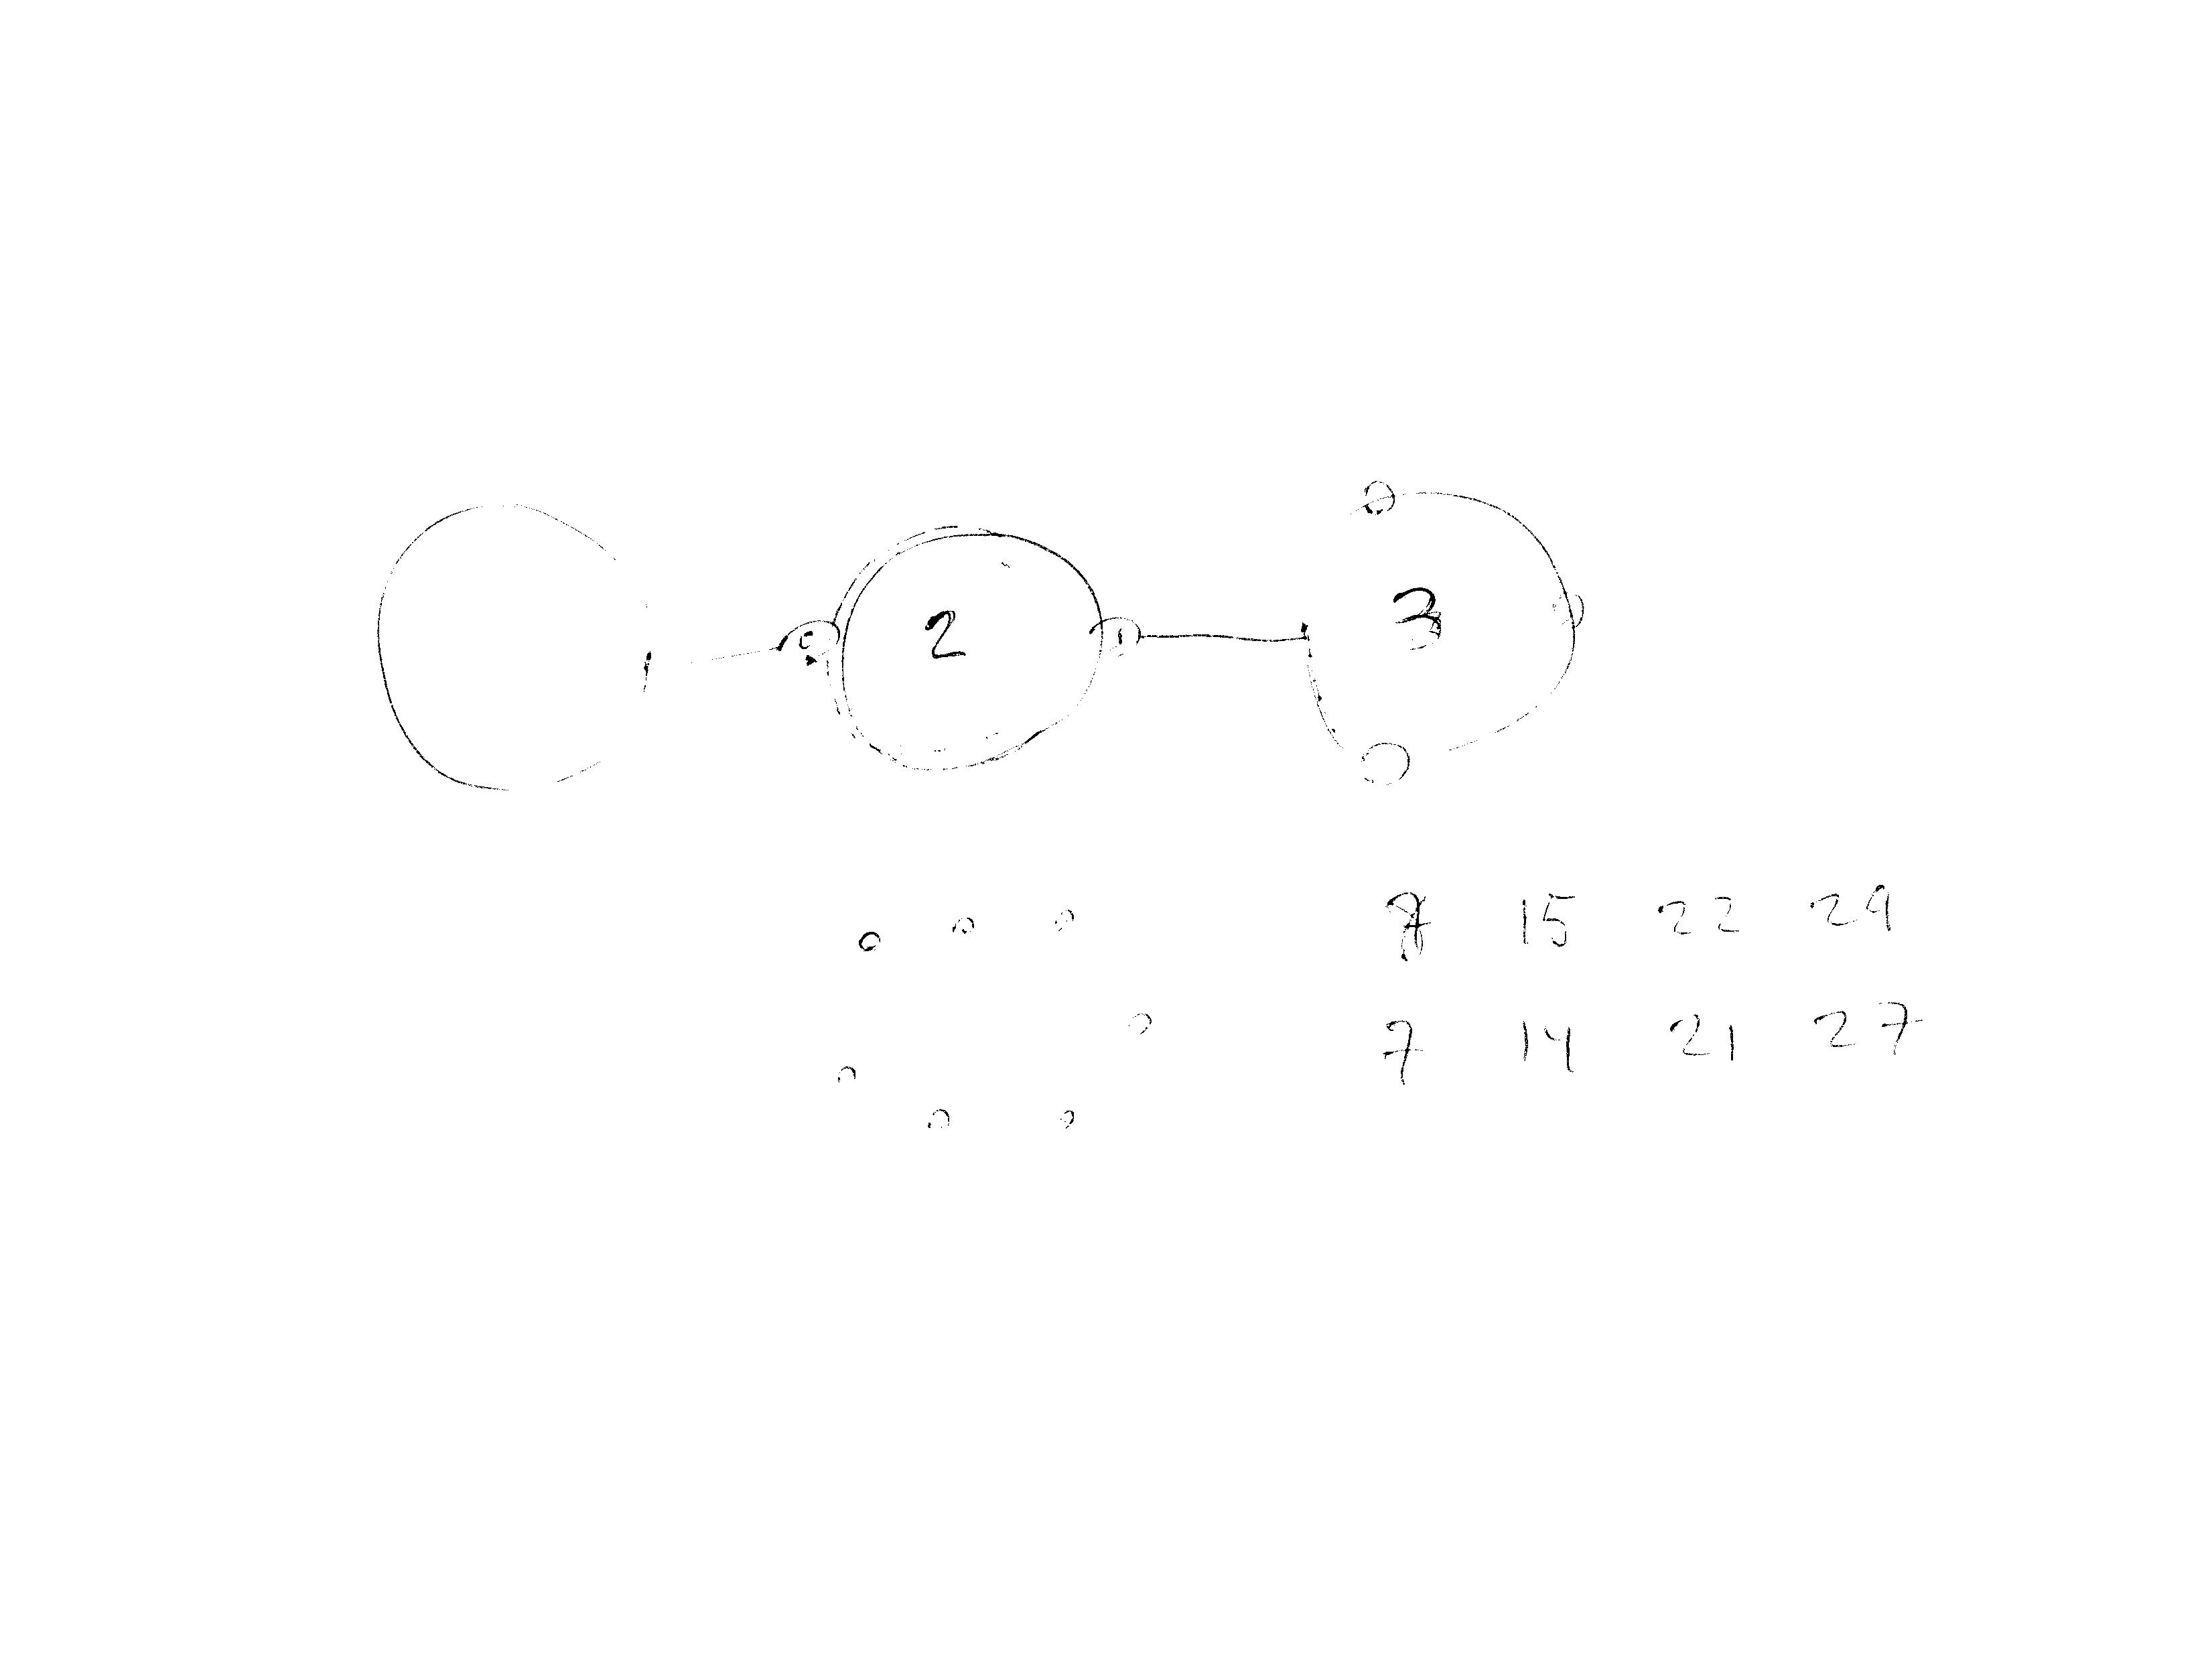 2 3
15 22 29
7 14 21 27